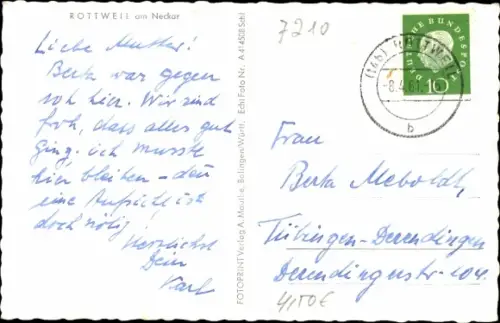 ROTTWEIL am Neckar
Liebe Mutter!
Berta war gegen
hier. Wir sind
froh, dass alles gut
ging. ich musste
hier bleiben - den
eine Aufsicht ist
doch nötig!
Herzlichst
Dein
Karl
FOTOPRINT Verlag A. Mauthe, Balingen/Württ. Echt Foto Nr. A 414508 Schl
7210
(14b) ROTTWEIL
-8.4.61.
b
DEUTSCHE BUNDESPOST
10
Frau
Berta Meboldt,
Tübingen-Derendingen
Derendingerstr. 104.
4,50€